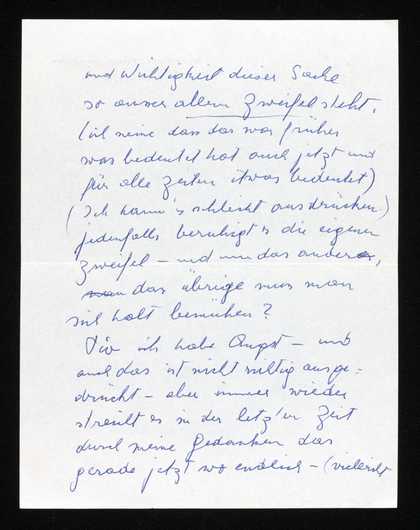 und Wichtigkeit dieser Sache
so ausser allem Zweifel steht.
(ich meine dass das was früher
was bedeutet hat auch jetzt und
für alle Zeiten etwas bedeutet)
(Ich kann's schlecht ausdrücken)
jedenfalls beruhigt's die eigenen
Zweifel – und nun das andere,
das übrige muss man
sich halt bemühen?
ich habe Angst – und
auch das ist nicht richtig ausge=
drückt – aber immer wieder
streift es in der letz'en Zeit
durch meine Gedanken dass
gerade jetzt wo endlich – (vielleicht